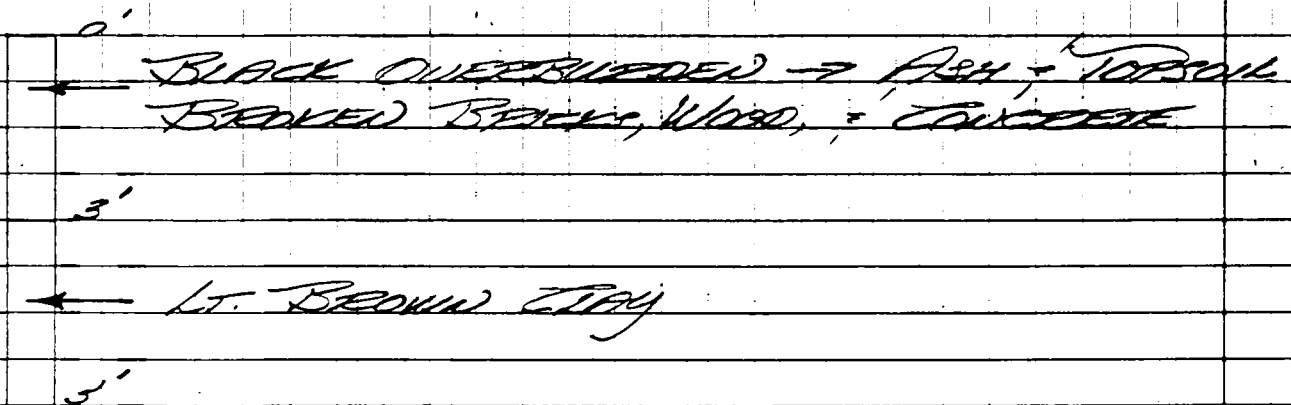 0'
BLACK OVERBURDEN → ASH & TOPSOIL
BROKEN BRICKS, WOOD, & CONCRETE
3'
LT. BROWN CLAY
5'